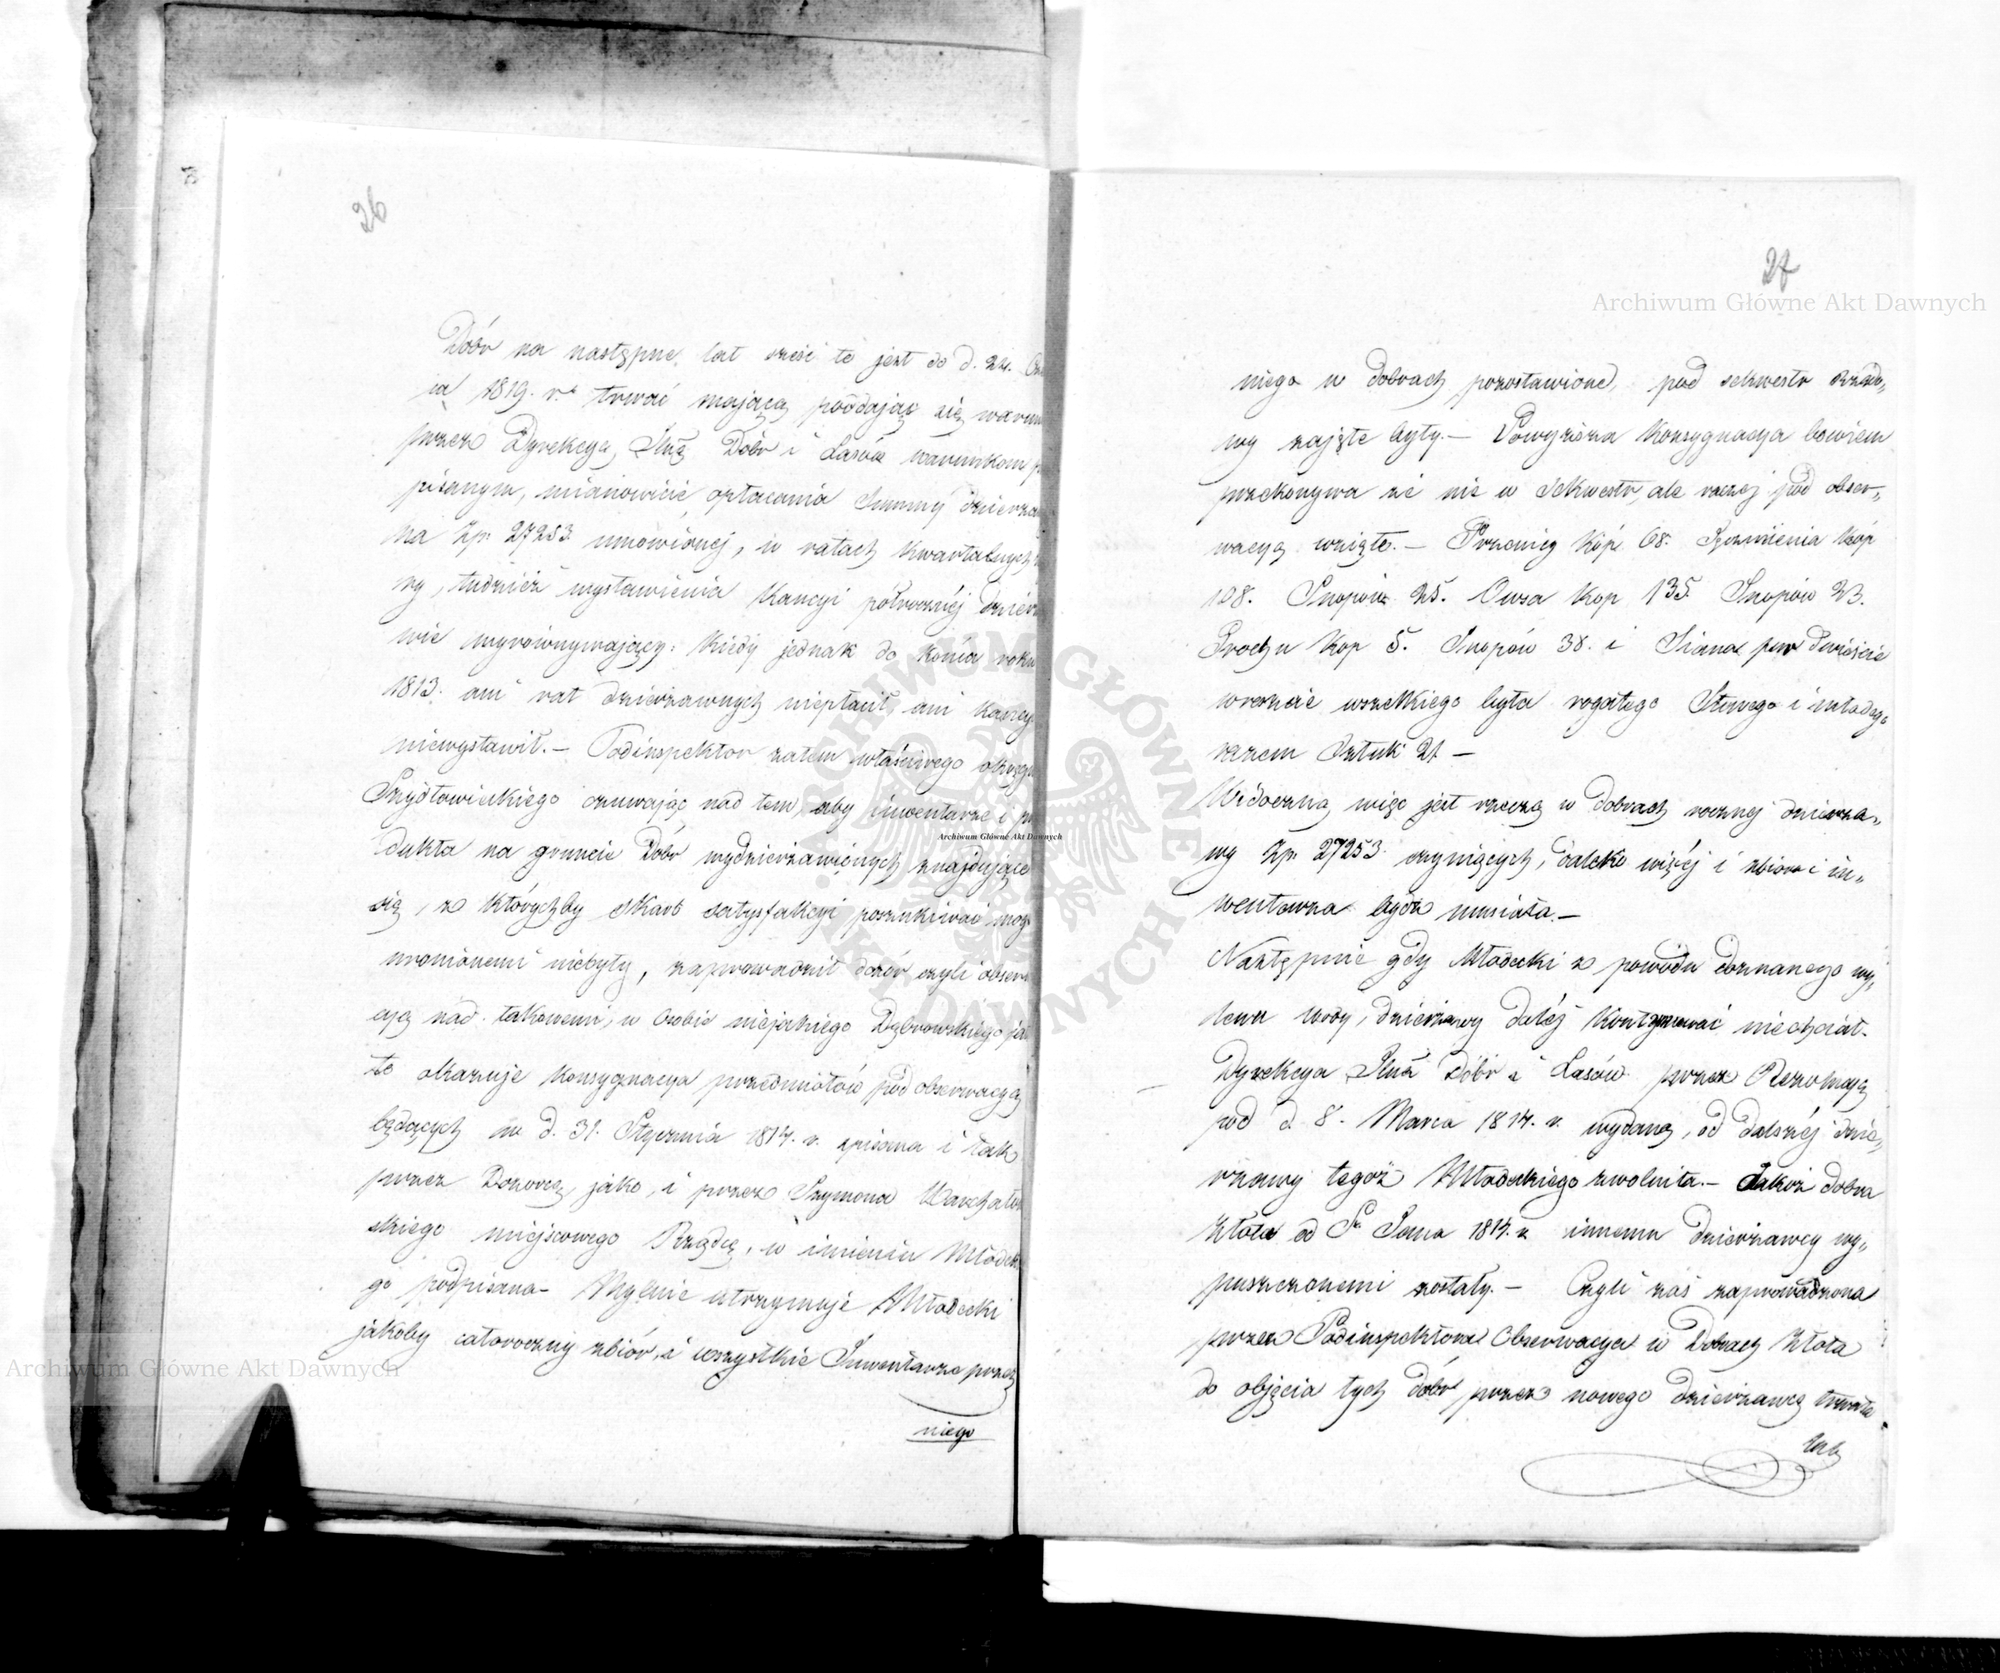 26
Dóbr na następne lat sześć to jest do d. 24.
ca 1819. r. trwać mającą poddając się
przez Dyrekcyą Jlną Dóbr i Lasów warunkom
pisanym, mianowicie opłacania Summy
na Zp: 27253 umówionej, w ratach kwartalnych
ry, tudzież wystawienia Kaucyi półroczney
wie wyrównywającey: kiedy jednak do końca roku
1813. ani rat dzierzawnych niepłacił, ani
niewystawił. — Podinspektor zatem właściwego
Szydłowieckiego czuwając nad tem, aby inwentarze i
dukta na gruncie Dóbr wydzierzawionych znajdujące
się, z którychby Skarb satysfakcyi poszukiwać
uronionemi niebyły, zaprowadził dozór, czyli
cyą nad takowemi, w osobie niejakiego Dąbrowskiego
to okazuje konsygnacya przedmiotów pod obserwacyą
będących w d. 31. Stycznia 1814. r. spisana i tak
przez Dozorcę, jako, i przez Szymona
skiego miejscowego Rządcę, w imieniu
go podpisana — Mylnie utrzymuje Młodecki
jakoby całoroczny zbiór, i wszystkie Inwentarze przez
niego
27
Archiwum Główne Akt Dawnych
niego w dobrach pozostawione, pod sekwestr rządo„
wy zajęte były. — Powyższa Konsygnacya bowiem
przekonywa że nie w Sekwestr, ale raczej pod obser„
wacyą wzięto. — Pszenicy Kóp 68. Jęczmienia Kóp
108. Snopów 25. Owsa Kop 135. Snopów 23.
Grochu Kop 5. Snopów 38. i Siana
wreszcie wszelkiego bydła rogatego Starego i młodego
razem Sztuk 21 —
Widoczną więc jest rzeczą w dobrach roczney dzierza„
wy Zp: 27253 czyniących, daleko więcéj i zbioru i in„
wentarza bydź musiało. —
Następnie gdy Młodecki z powodu doznanego wy„
lewu wody, dzierżawy daléj kontynuować niechciał.
Dyrekcya Jlna Dóbr i Lasów przez Rezolucyą
pod d. 8. Marca 1814. r. wydaną, od dalszéj dzie„
rzawy tegoż Młodeckiego uwolniła. — Jakoż dobra
Złota od S. Jana 1814. r. innemu dzierzawcy wy„
puszczonemi zostały. — Czyli zaś zaprowadzona
przez Podinspektora Obserwacya w Dobrach Złota
do objęcia tych dóbr przez nowego dzierzawcę trwała
Archiwum Główne Akt Dawnych
Archiwum Główne Akt Dawnych
ARCHIWUM GŁÓWNE AKT DAWNYCH